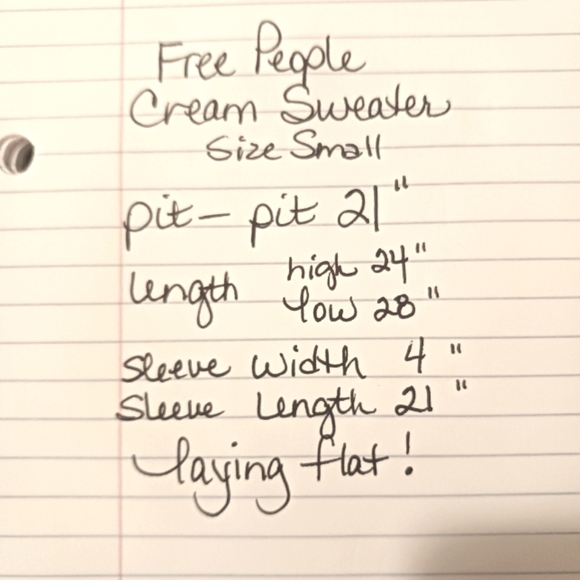 Free People
Cream Sweater
Size Small
pit - pit 21"
length high 24"
low 28"
Sleeve Width 4"
Sleeve Length 21"
laying flat!